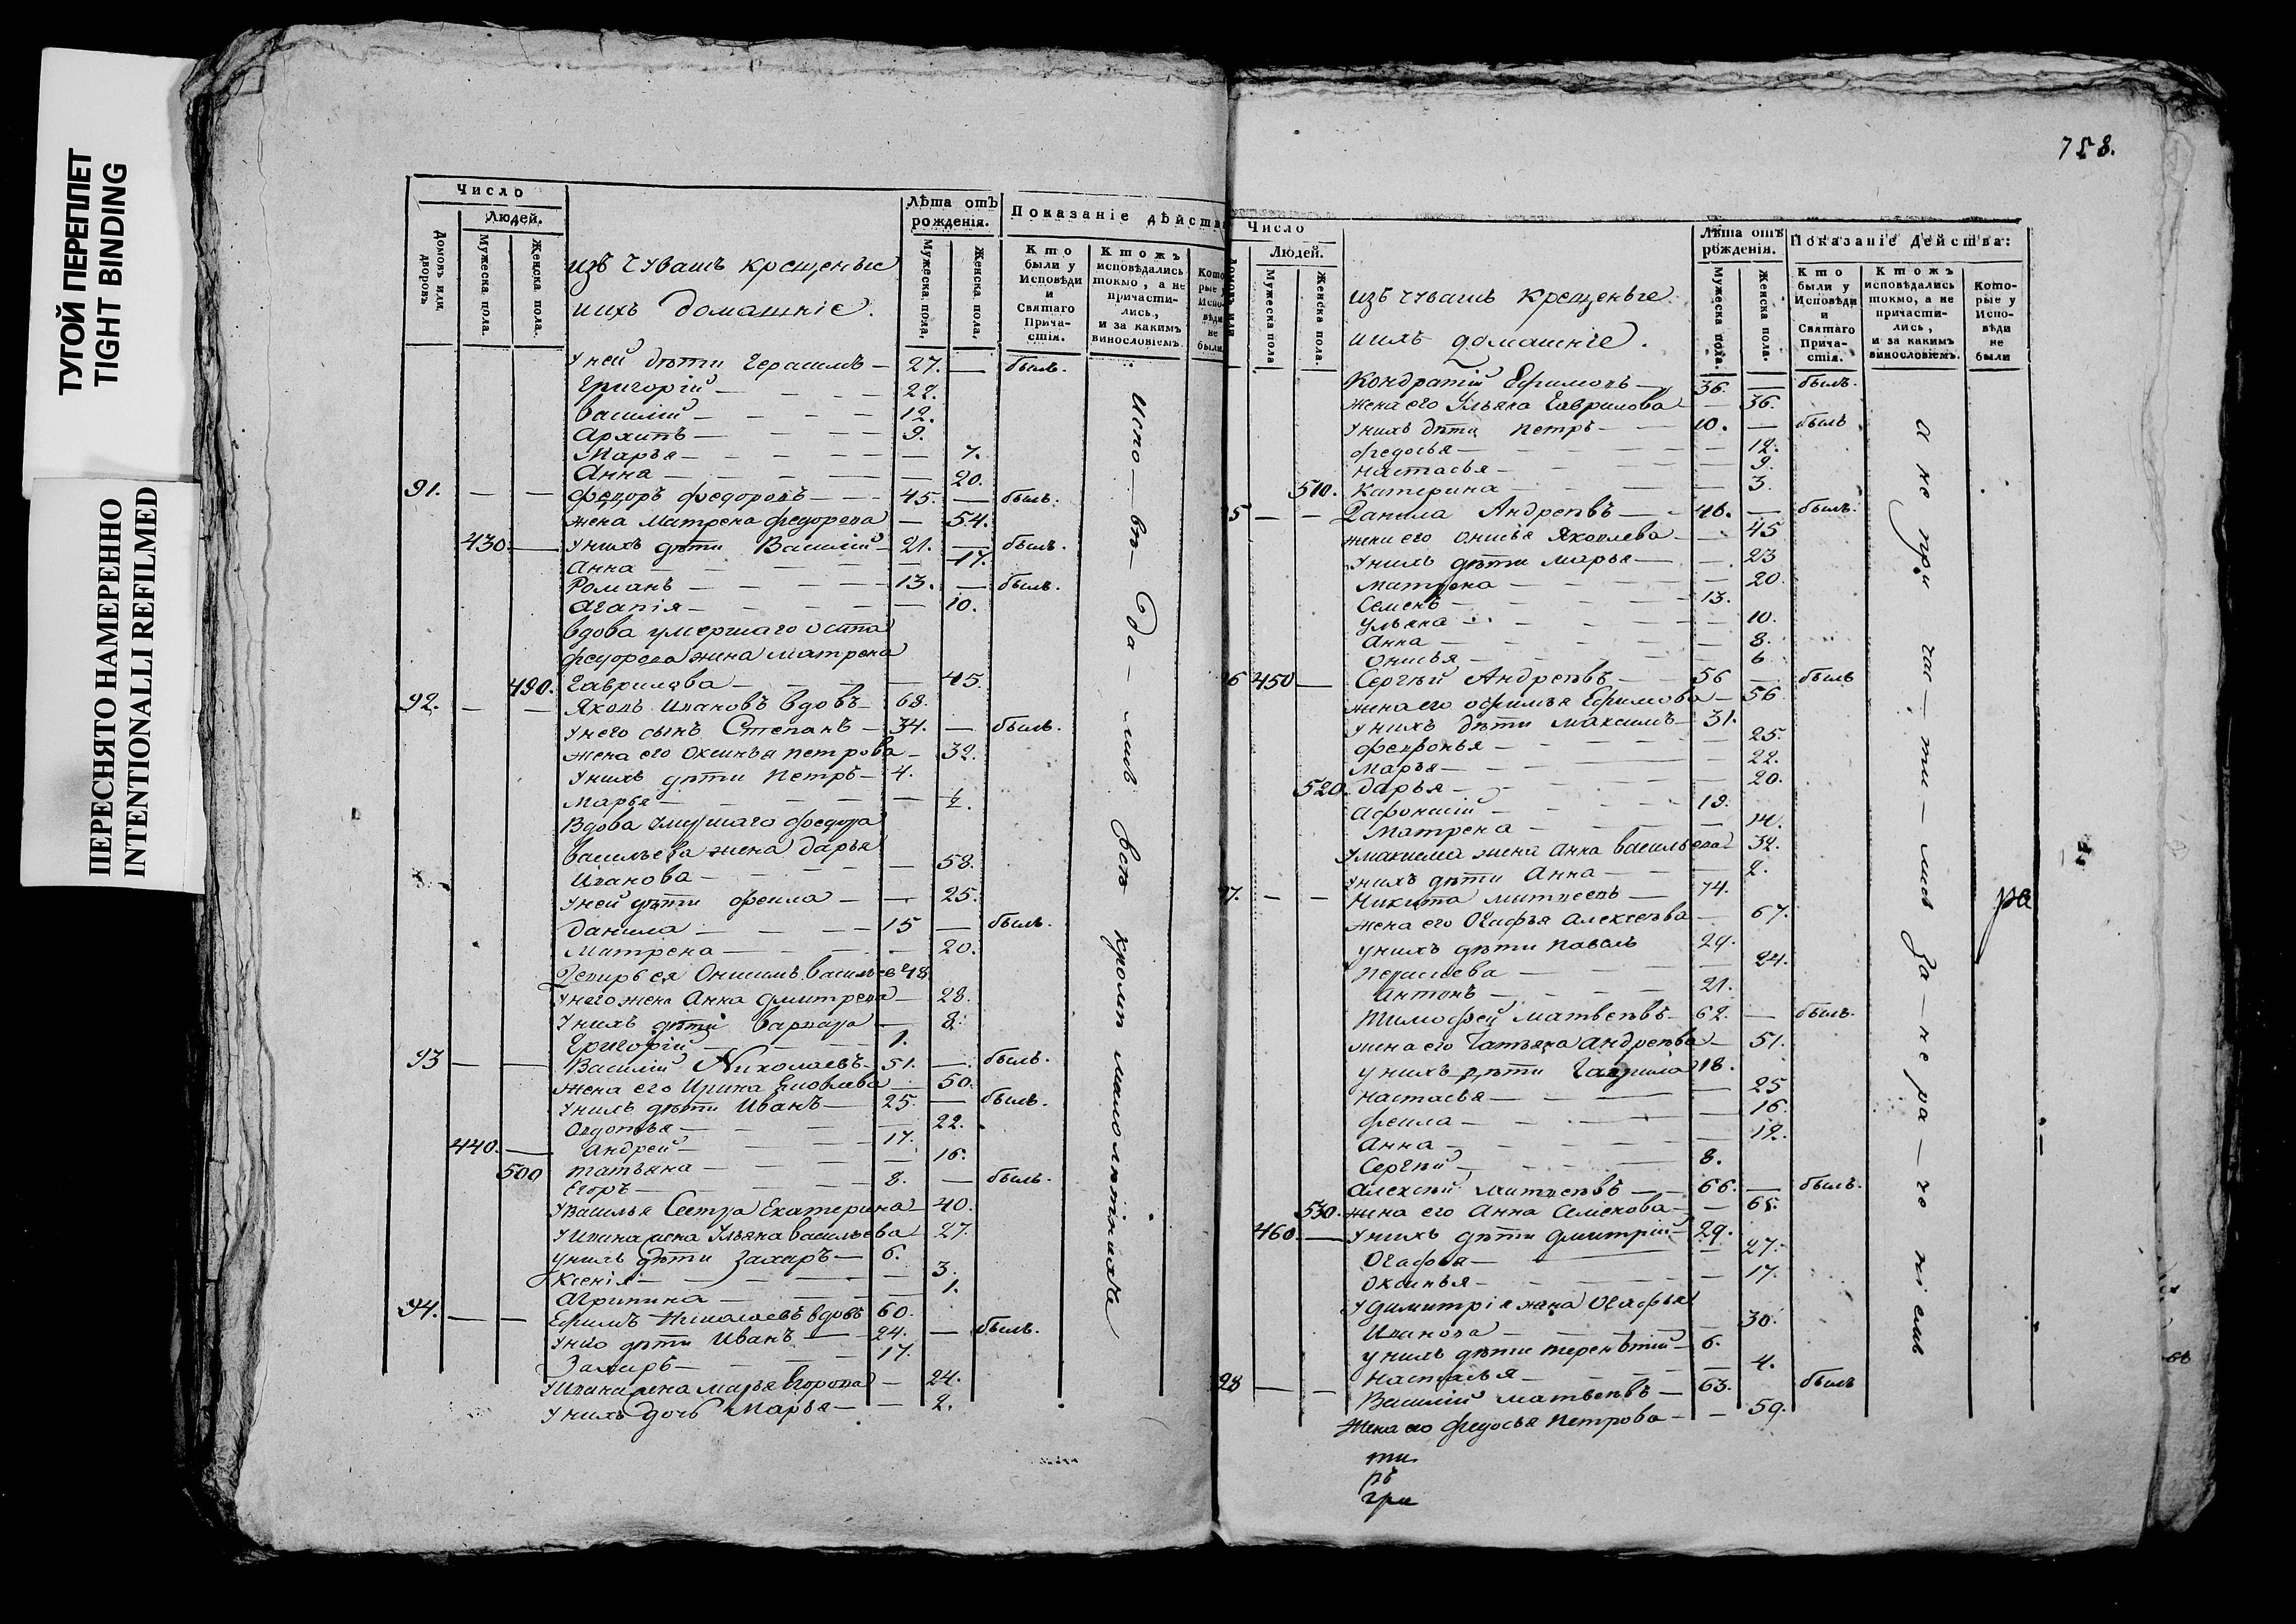 ТУГОЙ ПЕРЕПЛЕТ
TIGHT BINDING
ПЕРЕСНЯТО НАМЕРЕННО
INTENTIONALLI REFILMED
Число
Людей.
Домовъ или дворовъ
Мужеска пола.
Женска пола.
изъ чувашъ крещеные
ихъ домашніе.
Лѣта отъ рожденія.
Мужеска пола.
Женска пола.
Показаніе дѣйства
Кто были у Исповѣди и Святаго Прича-стія.
Ктожъ исповѣдались токмо, а не причасти-лись, и за какимъ винословіемъ.
Кото-рые у Испо-вѣди не были
У ней дѣти Герасимъ — 27. — былъ.
Григорій — 22.
Василій — 12.
Архипъ — 9.
Марья — 7.
Анна — 20.
91. — — Федоръ Федоровъ — 45. — былъ.
жена Матрена Федорова — 54.
430. — У нихъ дѣти Василій — 21. — былъ.
Анна — 17.
Романъ — 13. — былъ.
Агапія — 10.
вдова умершаго
Федорова жена Матрена
490. Гаврилова — 45.
92. — — Яковъ Ивановъ вдовъ — 68.
У него сынъ Степанъ — 34. — былъ.
жена его Оксинья Петрова — 32.
У нихъ дѣти Петръ — 4.
Марья — ½.
Вдова умершаго Федора
Васильева жена Дарья
Иванова — 58.
У ней дѣти Фекла — 25.
Данила — 15 — былъ.
Матрена — 20.
Онисимъ Васильевъ 48
У него жена Анна Дмитрева — 28.
У нихъ дѣти Варвара — 8.
Григорій — 1.
93 — — Василій Николаевъ — 51. — былъ.
жена его Ирина Яковлева — 50.
У нихъ дѣти Иванъ — 25. — былъ.
Овдотья — 22.
440. — Андрей — 17.
500 Татьяна — 16.
Егоръ — 8. — былъ.
У Василья Сестра Екатерина — 40.
У Ивана жена Ульяна Васильева 27.
У нихъ дѣти Захаръ — 6.
Ксенія — 3.
Агрипина — 1.
94. — — Ефимъ Николаевъ вдовъ 60.
У него дѣти Иванъ — 24. — былъ.
Захаръ — 17.
У Ивана жена Марья Егорова — 24.
У нихъ дочь Марья — 2.
Испо — вѣ — да — лись всѣ кромѣ малолѣтнихъ
758.
Число
Людей.
Домовъ или
Мужеска пола
Женска пола.
изъ чувашъ крещеные
ихъ домашніе.
Лѣта отъ рожденія.
Мужеска пола.
Женска пола.
Показаніе Действа:
Кто были у Исповѣди и Святаго Прича-стія.
Ктожъ исповѣдались токмо, а не причасти-лись, и за какимъ винословіемъ.
Кото-рые у Испо-вѣди не были
Кондратій Ефимовъ — 36. — былъ.
жена его Ульяна Гаврилова — 36.
У нихъ дѣти Петръ — 10. — былъ
Федосья — 12.
Настасья — 9.
510. Катерина — 3.
5 — — Данила Андреевъ — 46. — былъ.
жена его Онисья Яковлева — 45
У нихъ дѣти Марья — 23
Матрена — 20.
Семенъ — 13.
Ульяна — 10.
Анна — 8.
Онисья — 6
6 450 — Сергѣй Андреевъ — 56 — былъ
жена его Офимья Ефимова — 56
У нихъ дѣти Максимъ — 31.
Февронья — 25.
Марья — 22.
520. Дарья — 20.
Афонасій — 19.
Матрена — 14.
У Максима жена Анна Васильева 32.
У нихъ дѣти Анна — 2.
7. — — Никита — 74.
жена его Огафья Алексѣева — 67.
У нихъ дѣти Павелъ 29.
— 24.
Антонъ — 21.
Тимофей Матвѣевъ — 62. — былъ.
жена его Татьяна Андреева — 51.
У нихъ дѣти Гаврила 18.
Настасья — 25
Фекла — 16.
Анна — 12.
Сергѣй — 8.
Алексѣй — 66. — былъ.
530. жена его Анна Семенова — 65.
460. — У нихъ дѣти Дмитрій — 29.
Огафья — 27.
Оксинья — 17.
У Димитрія жена Огафья
Иванова — 30.
У нихъ дѣти Терентій — 6.
Настасья — 4.
98 — — Василій Матвѣевъ — 63. былъ
Жена его Федосья Петрова — 59.
ти
пъ
гри
а не при — ча — ти — лись за — не ра — че ніемъ
ра